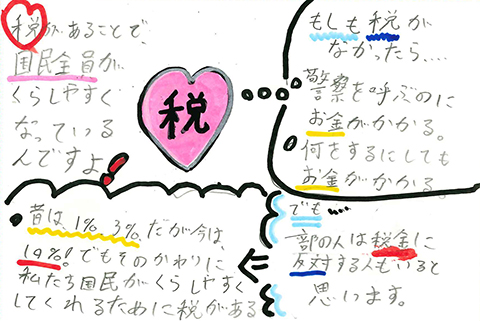 税があることで、
国民全員が
くらしやすく
なっている
んですよ!
税
もしも税が
なかったら....
警察を呼ぶのに
お金がかかる。
何をするにしても
お金がかかる。
でも....
一部の人は税金に
反対する人もいると
思います。
昔は、1%、3%、だが今は、
10%!でもそのかわりに
私たち国民がくらしやすく
してくれるために税がある